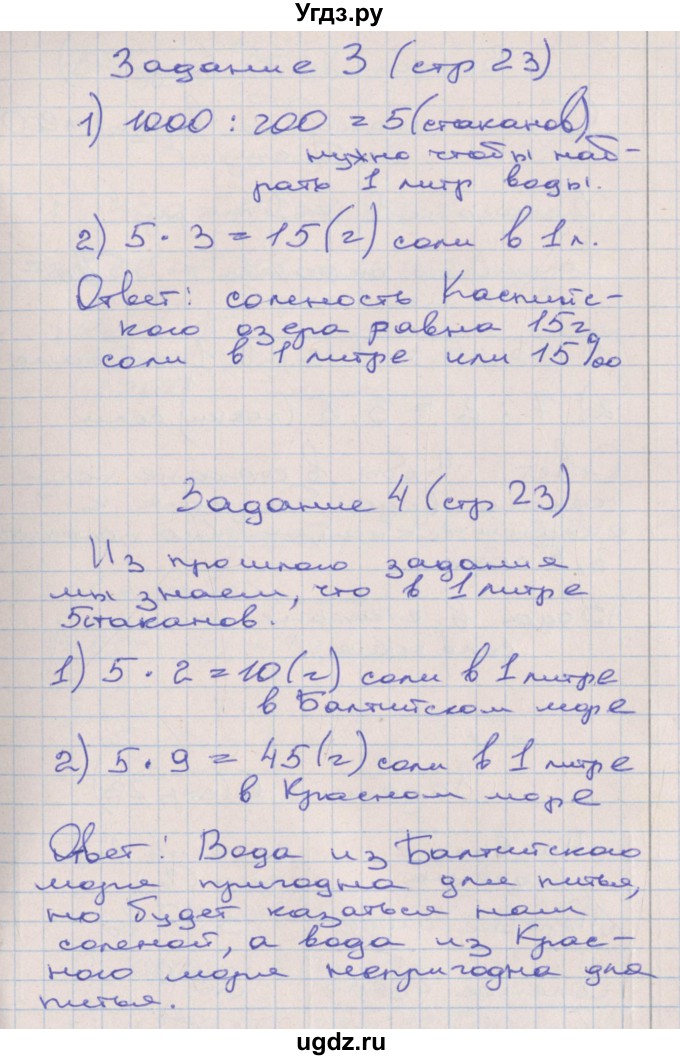 Угдз.ру
Задание 3 (стр 23)
1) 1000 : 200 = 5 (стаканов)
нужно чтобы наб-
рать 1 литр воды.
2) 5 · 3 = 15 (г) соли в 1 л.
Ответ: соленость Каспийс-
кого озера равна 15 г
соли в 1 литре или 15‰
Задание 4 (стр 23)
Из прошлого задания
мы знаем, что в 1 литре
5 стаканов.
1) 5 · 2 = 10 (г) соли в 1 литре
в Балтийском море
2) 5 · 9 = 45 (г) соли в 1 литре
в Красном море
Ответ: Вода из Балтийского
моря пригодна для питья,
но будет казаться нам
соленой, а вода из Крас-
ного моря непригодна для
питья.
ugdz.ru